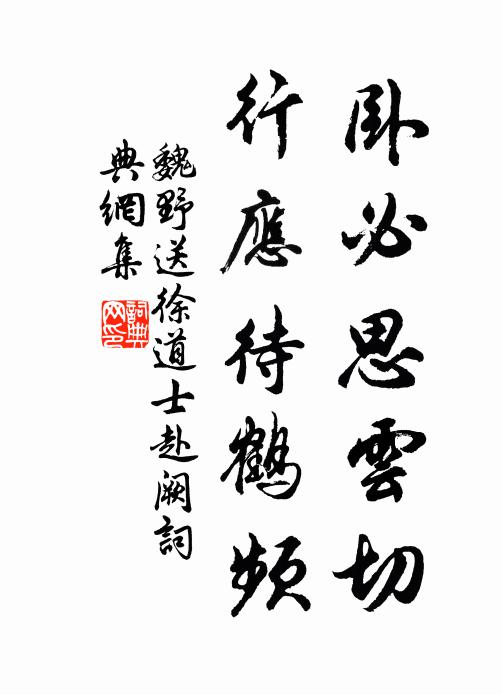 臥必思雲切
行應待鶴頻
魏野送徐道士赴闕詞
典網集
詞典
网印